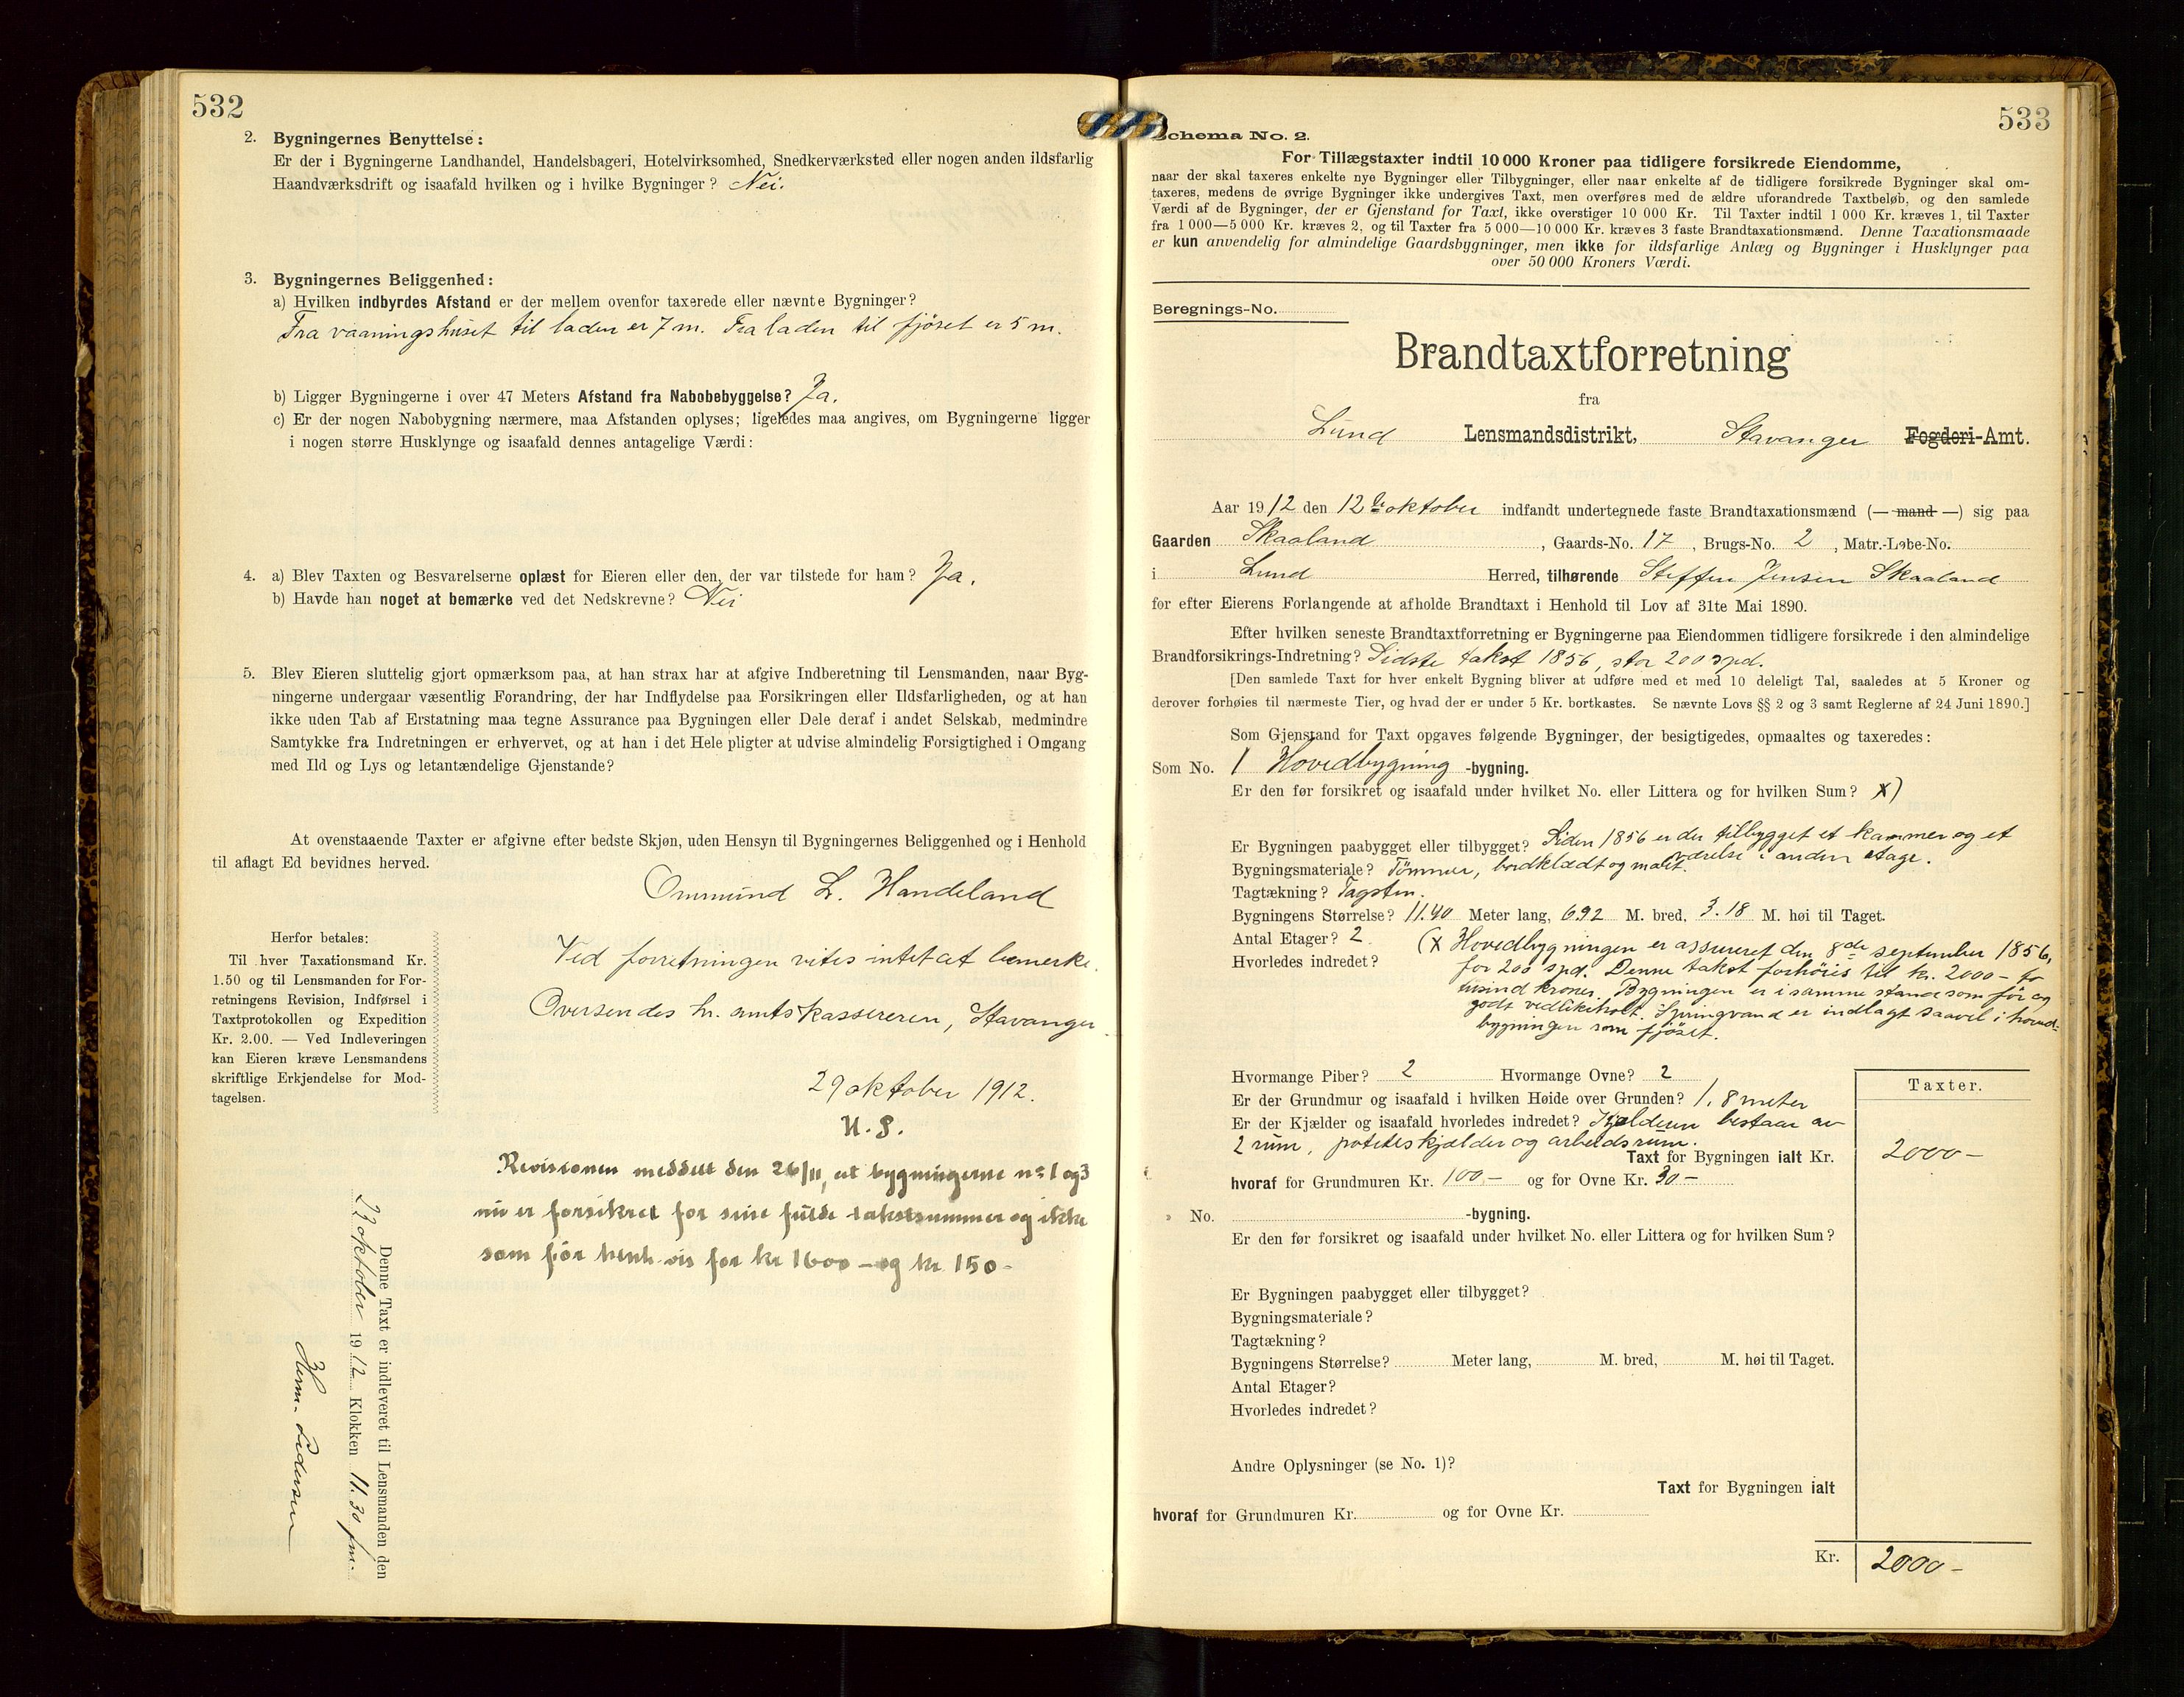 532
2. Bygningernes Benyttelse:
Er der i Bygningerne Landhandel, Handelsbageri, Hotelvirksomhed, Snedkerværksted eller nogen anden ildsfarlig
Haandværksdrift og isaafald hvilken og i hvilke Bygninger? Nei.
3. Bygningernes Beliggenhed:
a) Hvilken indbyrdes Afstand er der mellem ovenfor taxerede eller nævnte Bygninger?
Fra vaaningshuset til laden er 7 m. Fra laden til fjöset er 5 m.
b) Ligger Bygningerne i over 47 Meters Afstand fra Nabobebyggelse? Ja.
c) Er der nogen Nabobygning nærmere, maa Afstanden oplyses; ligeledes maa angives, om Bygningerne ligger
i nogen større Husklynge og isaafald dennes antagelige Værdi:
4. a) Blev Taxten og Besvarelserne oplæst for Eieren eller den, der var tilstede for ham? Ja.
b) Havde han noget at bemærke ved det Nedskrevne? Nei
5. Blev Eieren sluttelig gjort opmærksom paa, at han strax har at afgive Indberetning til Lensmanden, naar Byg-
ningerne undergaar væsentlig Forandring, der har Indflydelse paa Forsikringen eller Ildsfarligheden, og at han
ikke uden Tab af Erstatning maa tegne Assurance paa Bygningen eller Dele deraf i andet Selskab, medmindre
Samtykke fra Indretningen er erhvervet, og at han i det Hele pligter at udvise almindelig Forsigtighed i Omgang
med Ild og Lys og letantændelige Gjenstande?
At ovenstaaende Taxter er afgivne efter bedste Skjøn, uden Hensyn til Bygningernes Beliggenhed og i Henhold
til aflagt Ed bevidnes herved.
Ommund L. Handeland
Herfor betales:
Til hver Taxationsmand Kr.
1.50 og til Lensmanden for For-
retningens Revision, Indførsel i
Taxtprotokollen og Expedition
Kr. 2.00. — Ved Indleveringen
kan Eieren kræve Lensmandens
skriftlige Erkjendelse for Mod-
tagelsen.
Ved forretningen vites intet at bemerke.
Oversendes hr. amtskassereren, Stavanger
29 oktober 1912.
H. S.
Revisionen meddelt den 26/11, at bygningerne no 1 og 3
nu er forsikret for sine fulde takstsummer og ikke
som för henh.vis for kr 1600 - og kr 150 -
Denne Taxt er indleveret til Lensmanden den
oktober 1912 Klokken 11.30 fm.
Pedersen
533
Schema No. 2.
For Tillægstaxter indtil 10 000 Kroner paa tidligere forsikrede Eiendomme,
naar der skal taxeres enkelte nye Bygninger eller Tilbygninger, eller naar enkelte af de tidligere forsikrede Bygninger skal om-
taxeres, medens de øvrige Bygninger ikke undergives Taxt, men overføres med de ældre uforandrede Taxtbeløb, og den samlede
Værdi af de Bygninger, der er Gjenstand for Taxt, ikke overstiger 10 000 Kr. Til Taxter indtil 1 000 Kr. kræves 1, til Taxter
fra 1 000—5 000 Kr. kræves 2, og til Taxter fra 5 000—10 000 Kr. kræves 3 faste Brandtaxationsmænd. Denne Taxationsmaade
er kun anvendelig for almindelige Gaardsbygninger, men ikke for ildsfarlige Anlæg og Bygninger i Husklynger paa
over 50 000 Kroners Værdi.
Beregnings-No.
Brandtaxtforretning
fra
Lund Lensmandsdistrikt, Stavanger Fogderi-Amt.
Aar 1912 den 12te oktober indfandt undertegnede faste Brandtaxationsmænd (— mand —) sig paa
Gaarden Skaaland, Gaards-No. 17, Brugs-No. 2, Matr.-Løbe-No.
i Lund Herred, tilhørende Steffen Jensen Skaaland
for efter Eierens Forlangende at afholde Brandtaxt i Henhold til Lov af 31te Mai 1890.
Efter hvilken seneste Brandtaxtforretning er Bygningerne paa Eiendommen tidligere forsikrede i den almindelige
Brandforsikrings-Indretning? Sidste takst 1856, stor 200 spd.
[Den samlede Taxt for hver enkelt Bygning bliver at udføre med et med 10 deleligt Tal, saaledes at 5 Kroner og
derover forhøies til nærmeste Tier, og hvad der er under 5 Kr. bortkastes. Se nævnte Lovs §§ 2 og 3 samt Reglerne af 24 Juni 1890.]
Som Gjenstand for Taxt opgaves følgende Bygninger, der besigtigedes, opmaaltes og taxeredes:
Som No. 1 Hovedbygning -bygning.
Er den før forsikret og isaafald under hvilket No. eller Littera og for hvilken Sum? x)
Er Bygningen paabygget eller tilbygget? Siden 1856 er der tilbygget et kammer og et
værelse i anden etage.
Bygningsmateriale? Tömmer, bordklædt og malt.
Tagtækning? Tagsten.
Bygningens Størrelse? 11.40 Meter lang, 6.92 M. bred, 3.18 M. høi til Taget.
Antal Etager? 2
Hvorledes indredet?
(x Hovedbygningen er assureret den 8de september 1856,
for 200 spd. Denne takst forhöies til kr. 2000 - to
tusind kroner. Bygningen er i samme stand som för og
godt vedlikeholt. Springvand er indlagt saavel i hoved-
bygningen som fjöset.
Hvormange Piber? 2 Hvormange Ovne? 2
Er der Grundmur og isaafald i hvilken Høide over Grunden? 1.8 meter
Er der Kjælder og isaafald hvorledes indredet? Kjelderen bestaar av
2 rum, poteteskjælder og arbeidsrum.
Taxter.
Taxt for Bygningen ialt Kr. 2000 -
hvoraf for Grundmuren Kr. 100,- og for Ovne Kr. 30 -
No. -bygning.
Er den før forsikret og isaafald under hvilket No. eller Littera og for hvilken Sum?
Er Bygningen paabygget eller tilbygget?
Bygningsmateriale?
Tagtækning?
Bygningens Størrelse? Meter lang, M. bred, M. høi til Taget.
Antal Etager?
Hvorledes indredet?
Andre Oplysninger (se No. 1)?
Taxt for Bygningen ialt
hvoraf for Grundmuren Kr. og for Ovne Kr.
Kr. 2000 -